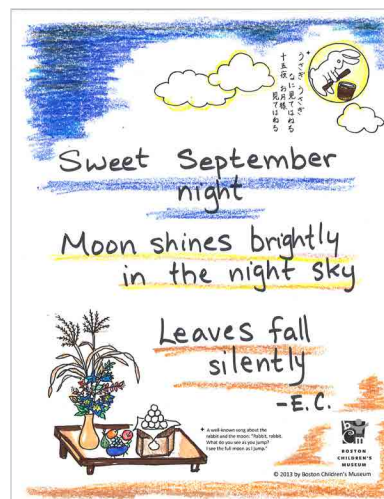 うさぎ うさぎ
なに見てはねる
十五夜 お月様
見てはねる
Sweet September
night
Moon shines brightly
in the night sky
Leaves fall
silently
-E.C.
✦ A well-known song about the
rabbit and the moon: "Rabbit, rabbit.
What do you see as you jump?
I see the full moon as I jump."
BOSTON
CHILDREN'S
MUSEUM
© 2013 by Boston Children's Museum